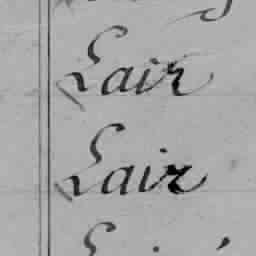 Lair
Lair